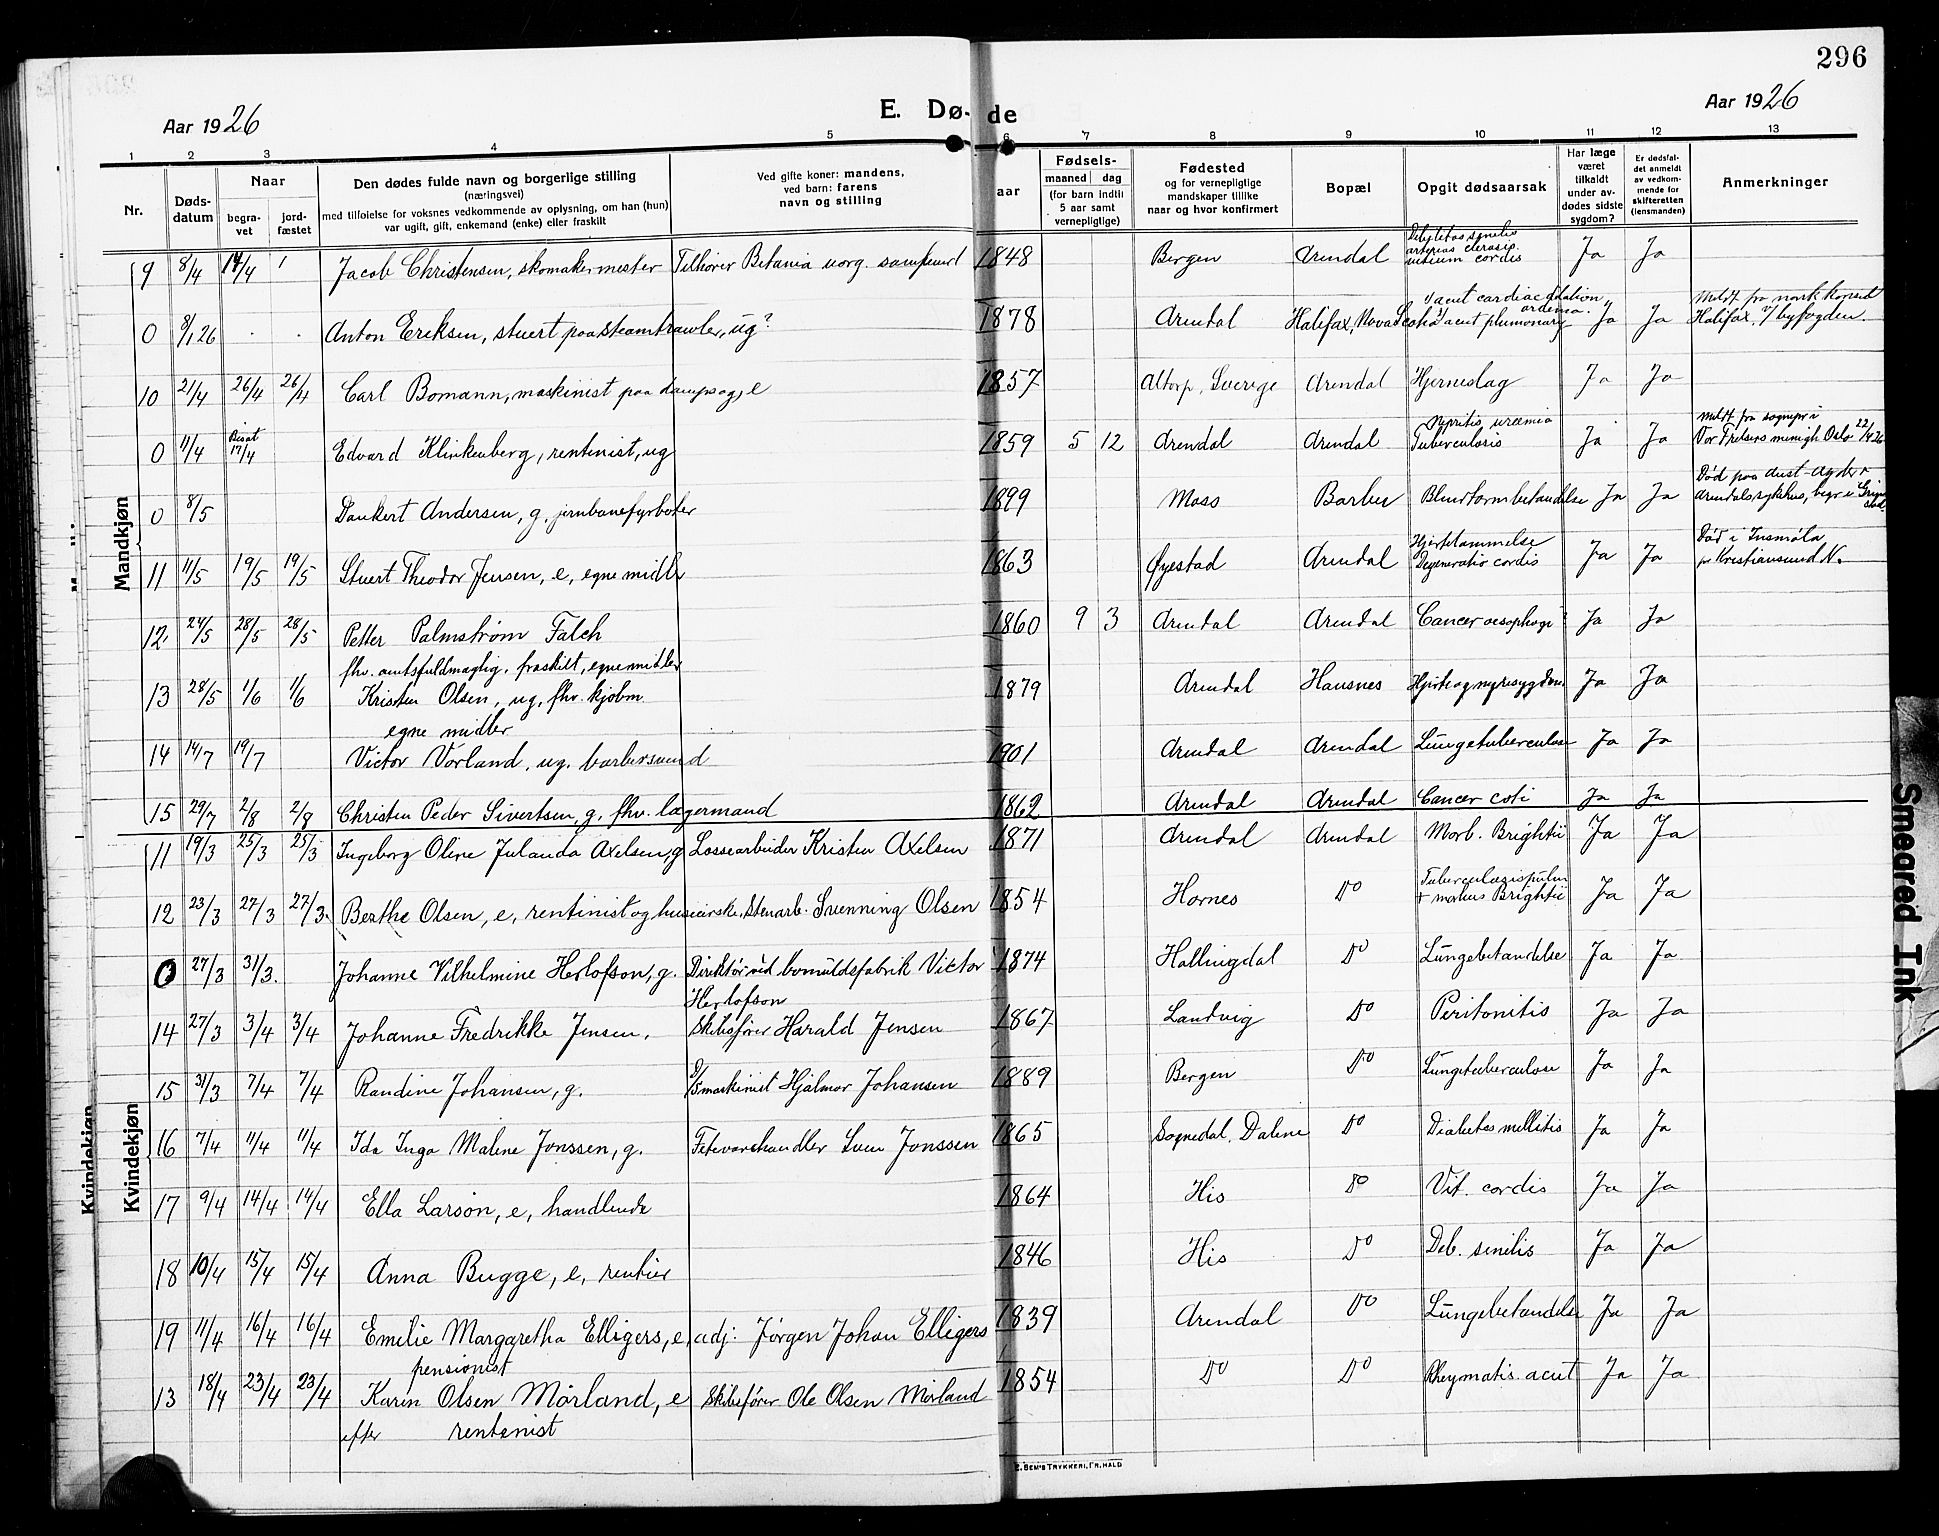 296
Aar 1926
E. Dø- de
Aar 1926
1 2 3 4 5 6 7 8 9 10 11 12 13
Nr.
Døds-
datum
Naar
begra-
vet
jord-
fæstet
Den dødes fulde navn og borgerlige stilling
(næringsvei)
med tilføielse for voksnes vedkommende av oplysning, om han (hun)
var ugift, gift, enkemand (enke) eller fraskilt
Ved gifte koner: mandens,
ved barn: farens
navn og stilling
aar
Fødsels-
maaned dag
(for barn indtil
5 aar samt
vernepligtige)
Fødested
og for vernepligtige
mandskaper tillike
naar og hvor konfirmert
Bopæl
Opgit dødsaarsak
Har læge
været
tilkaldt
under av-
dødes sidste
sygdom?
Er dødsfal-
det anmeldt
av vedkom-
mende for
skifteretten
(lensmanden)
Anmerkninger
Mandkjøn
9 8/4 14/4 Jacob Christensen, skomakermester Tilhører Betania uorg. samfund 1848 Bergen Arendal vitium cordis Ja Ja
0 8/1 26 Anton Eriksen, stuert paa steamtrawler, ug? 1878 Arendal Halifax, Nova Scotia acut cardiac dilation, acut plumonary Ja Ja Meldt fra norsk konsul Halifax, v/ byfogden.
10 21/4 26/4 26/4 Carl Bomann, maskinist paa dampsag, e 1857 Altorp, Sverige Arendal Hjerneslag Ja Ja
0 11/4 Bisat 17/4 Edvard Klinkenberg, rentenist, ug 1859 5 12 Arendal Arendal Nepritis, uræmia Tuberculosis Ja Ja Meldt fra sognepr i Vor Frelsers menigh Oslo 22/4 26
0 8/5 Dankert Andersen, g, jernbanefyrbøter 1899 Moss Barbu Blindtarmbetændelse Ja Ja Død paa Aust-Agder - Arendals sykehus, begr i Grimstad.
11 11/5 19/5 19/5 Stuert Theodor Jensen, e, egne midler 1863 Øyestad Arendal Hjertelammelse Degeneratio cordis Ja Ja Død i Tusmøla pr Kristiansund N.
12 24/5 28/5 28/5 Petter Palmstrøm Falch 1860 9 3 Arendal Arendal Cancer oesophagi Ja Ja
fhv. amtsfuldmægtig, fraskilt, egne midler
13 28/5 1/6 1/6 Kristen Olsen, ug, fhv. kjøbm. 1879 Arendal Hausnes Hjerte og nyresygdom Ja Ja
egne midler
14 14/7 19/7 Victor Vorland, ug. barbersvend 1901 Arendal Arendal Lungetuberculose Ja Ja
15 29/7 2/8 2/8 Christen Peder Sivertsen, g, fhv. lagermand 1862 Arendal Arendal Cancer coli Ja Ja
Kvindekjøn
Kvindekjøn
11 19/3 25/3 25/3 Ingeborg Oline Julanda Axelsen, g Lossearbeider Kristen Axelsen 1871 Arendal Arendal Morb. Brightii Ja Ja
12 23/3 27/3 27/3 Berthe Olsen, e, rentenist og huseierske, Stenarb. Svenning Olsen 1854 Hornes Do Tuberculosis pulm + morbus Brightii Ja Ja
0 27/3 31/3 Johanne Vilhelmine Herlofson, g. Direktør ved bomuldsfabrik Victor 1874 Hallingdal Do Lungebetændelse Ja Ja
Herlofson
14 27/3 3/4 3/4 Johanne Fredrikke Jensen, Skibsfører Harald Jensen 1867 Landvig Do Peritonitis Ja Ja
15 31/3 7/4 7/4 Randine Johansen, g. D/S maskinist Hjalmar Johansen 1889 Bergen Do Lungetuberculose Ja Ja
16 7/4 11/4 11/4 Ida Inga Maline Jonssen, g. Fetevarehandler Sven Jonssen 1865 Sognedal, Dalene Do Diabetes mellitis Ja Ja
17 9/4 14/4 14/4 Ella Larson, e, handlende 1864 His Do Vit. cordis Ja Ja
18 10/4 15/4 15/4 Anna Bugge, e, rentier 1846 His Do Deb. senilis Ja Ja
19 11/4 16/4 16/4 Emilie Margaretha Elligers, e, adj. Jørgen Johan Elligers 1839 Arendal Do Lungebetændelse Ja Ja
pensionist
13 18/4 23/4 23/4 Karen Olsen Mørland, e Skibsfører Ole Olsen Mørland 1854 Do Do Rheymatis. acut Ja Ja
efter rentenist
E. SEM'S TRYKKERI, FR. HALD
Smeared Ink